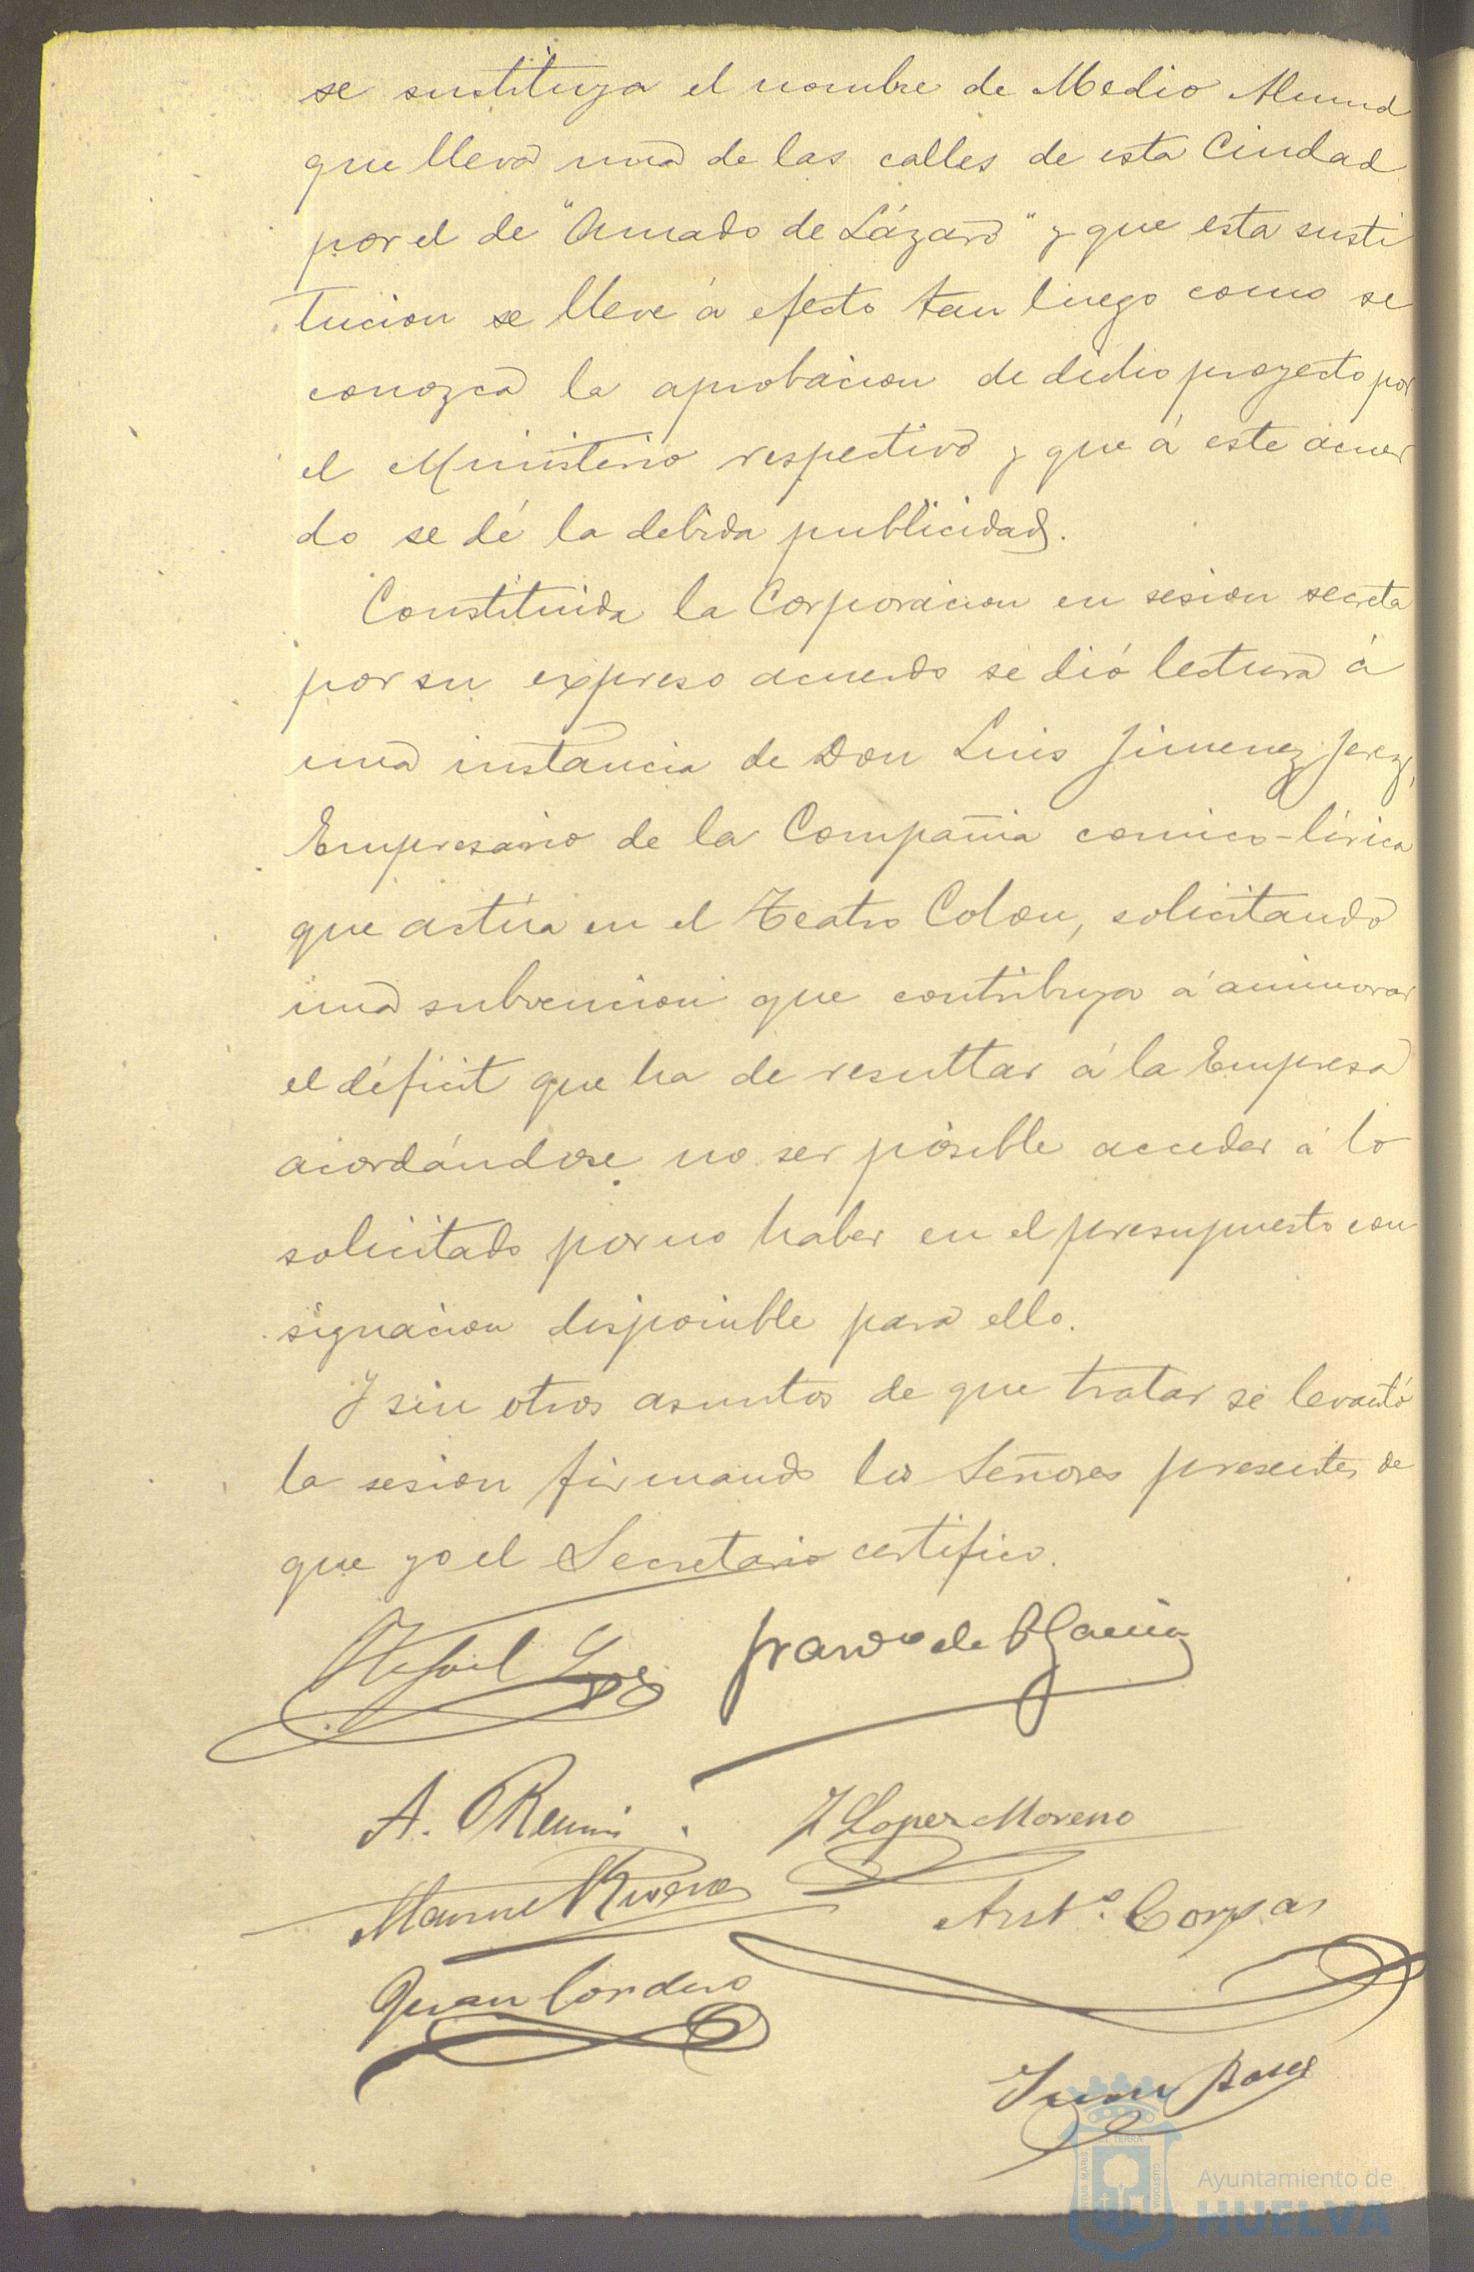 se sustituya el nombre de Medio Almud
que lleva una de las calles de esta Ciudad
por el de "Amado de Lázaro" y que esta susti
tucion se lleve á efecto tan luego como se
conozca la aprobacion de dicho proyecto por
el Ministerio respectivo y que á este acuer
do se dé la debida publicidad.
Constituida la Corporacion en sesion secreta
por su expreso acuerdo se dió lectura á
una instancia de Don Luis Jimenez Jerez,
Empresario de la Compañia comico-lírica
que actúa en el Teatro Colon, solicitando
una subvencion que contribuya á aminorar
el déficit que ha de resultar á la Empresa
acordándose no ser posible acceder á lo
solicitado por no haber en el presupuesto con
signacion disponible para ello.
Y sin otros asuntos de que tratar se levantó
la sesion firmando los Señores presentes de
que yo el Secretario certifico.
Rafael
de P García
A.
J Lopez Moreno
Manuel Rivera
Antº. Corpas
Juan Cordero
Juan
Ayuntamiento de
HUELVA